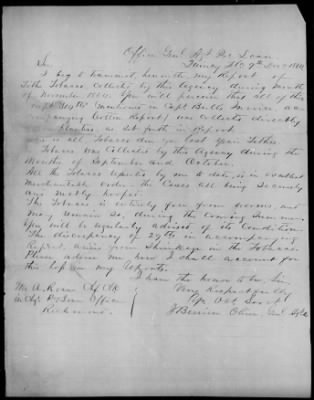 Office Genl Agt Pro. Loan
Quincy Fla 9th Decr 1864
Sir
I beg to transmit, herewith, my Report of
Tithe Tobacco, Collected by this Agency during Month
of November 1864. You will perceive that all of this
except 404 lbs (mentioned in Capt Bulls Invoice
accompanying Cotton Report) was Collected directly
from Planters, as set forth in Report
is all Tobacco due for last Years Tithes.
Tobacco was Collected by this Agency during the
Months of September and October.
All the Tobacco reported by me to date, is in excellent
Merchantable order, the Cases all being securely
and neatly hooped.
The Tobacco is entirely free from worms, and
may remain so, during the coming Summer.
You will be regularly advised of its Condition.
The discrepancy of 29 lbs in accompanying
Report, arises from Shrinkage in the Tobacco.
Please advise me how I shall account for
this loss in my Reports.
I have the honor to be, Sir,
Very Respectfully
Yr Obt Servt
Genl Agt
in Chge Pro. Loan Office
Richmond.